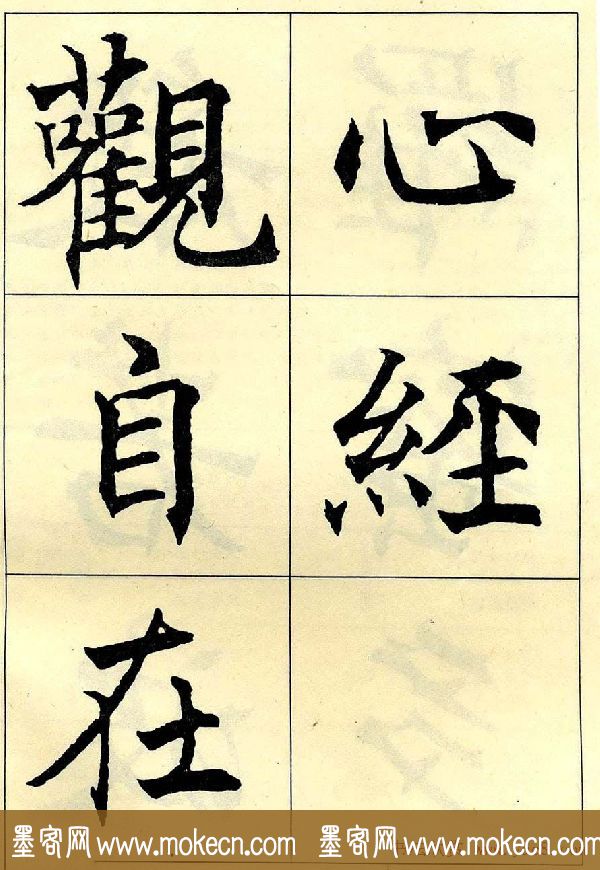 心經
觀自在
墨客网 www.mokecn.com 墨客网 www.mokecn.com